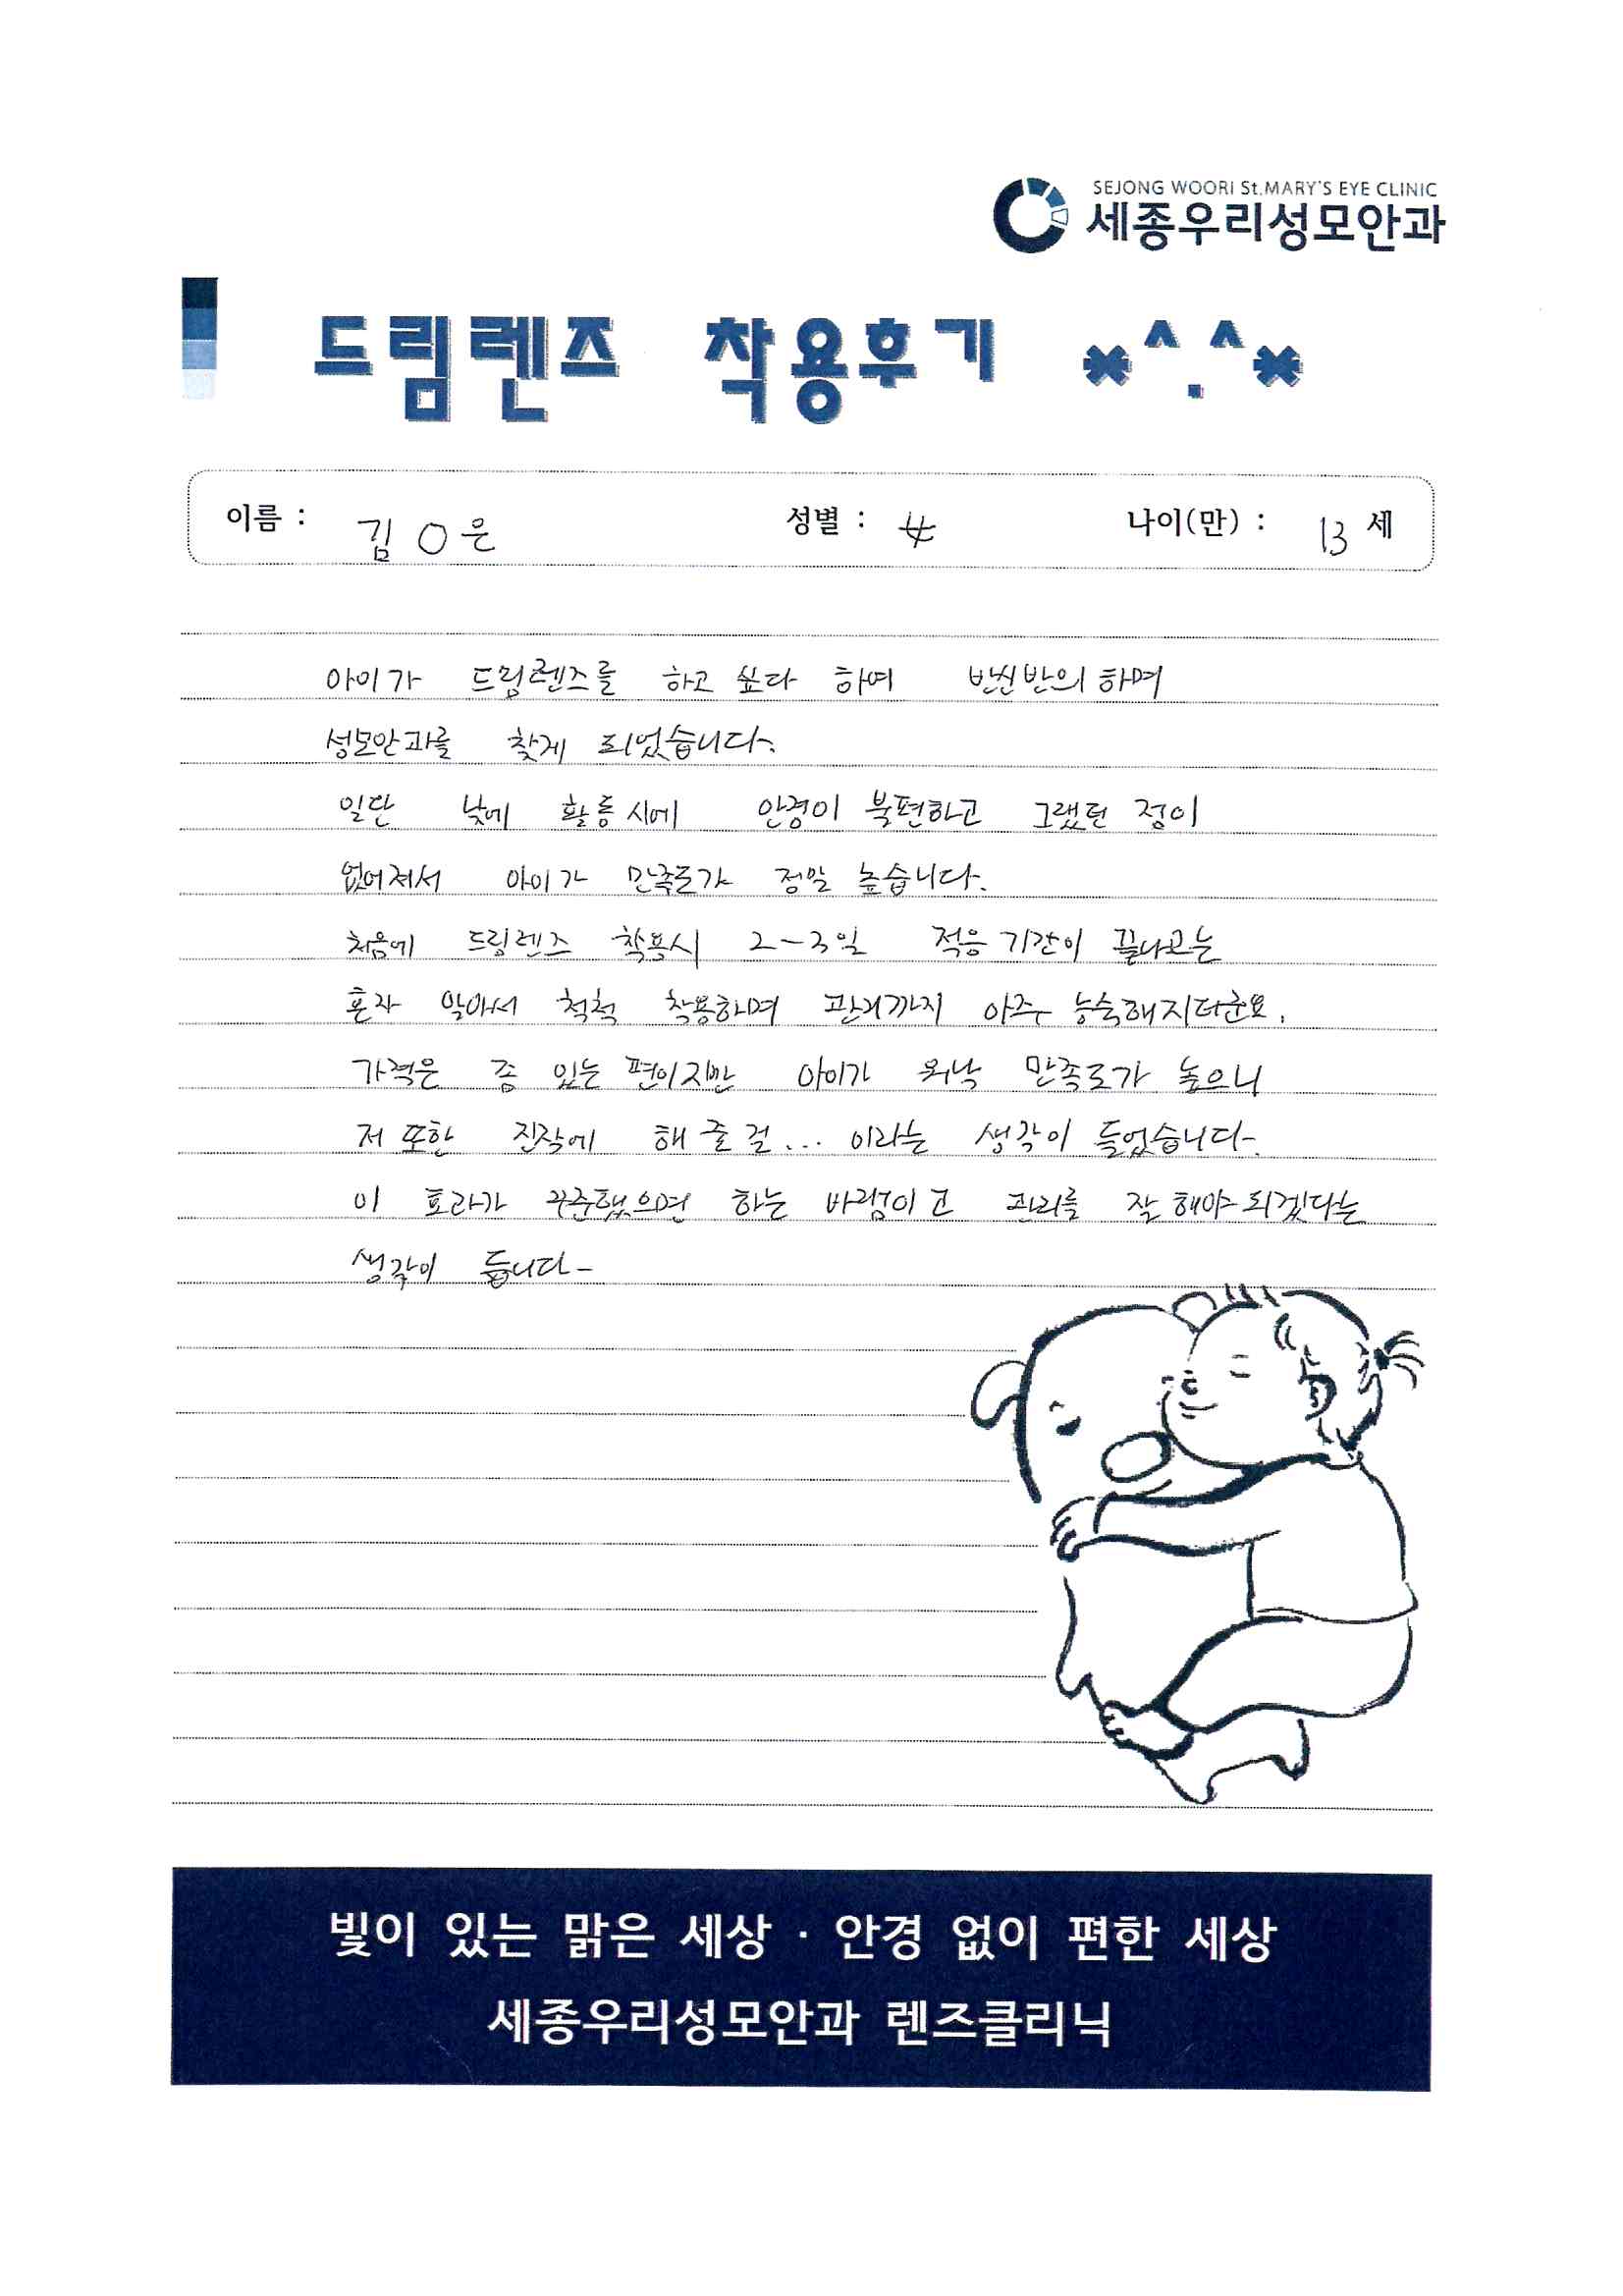 SEJONG WOORI St.MARY'S EYE CLINIC
세종우리성모안과
드림렌즈 착용후기 *^.^*
이름 : 김 O 은 성별 : 女 나이(만) : 13 세
아이가 드림렌즈를 하고 싶다 하여 반신반의 하며
성모안과를 찾게 되었습니다.
일단 낮에 활동시에 안경이 불편하고 그랬던 점이
없어져서 아이가 만족도가 정말 높습니다.
처음에 드림렌즈 착용시 2-3일 적응 기간이 끝나고는
혼자 알아서 척척 착용하며 관리까지 아주 능숙해지더군요.
가격은 좀 있는 편이지만 아이가 워낙 만족도가 높으니
저 또한 진작에 해 줄 걸... 이라는 생각이 들었습니다.
이 효과가 꾸준했으면 하는 바램이고 관리를 잘 해야 되겠다는
생각이 듭니다-
빛이 있는 맑은 세상 · 안경 없이 편한 세상
세종우리성모안과 렌즈클리닉